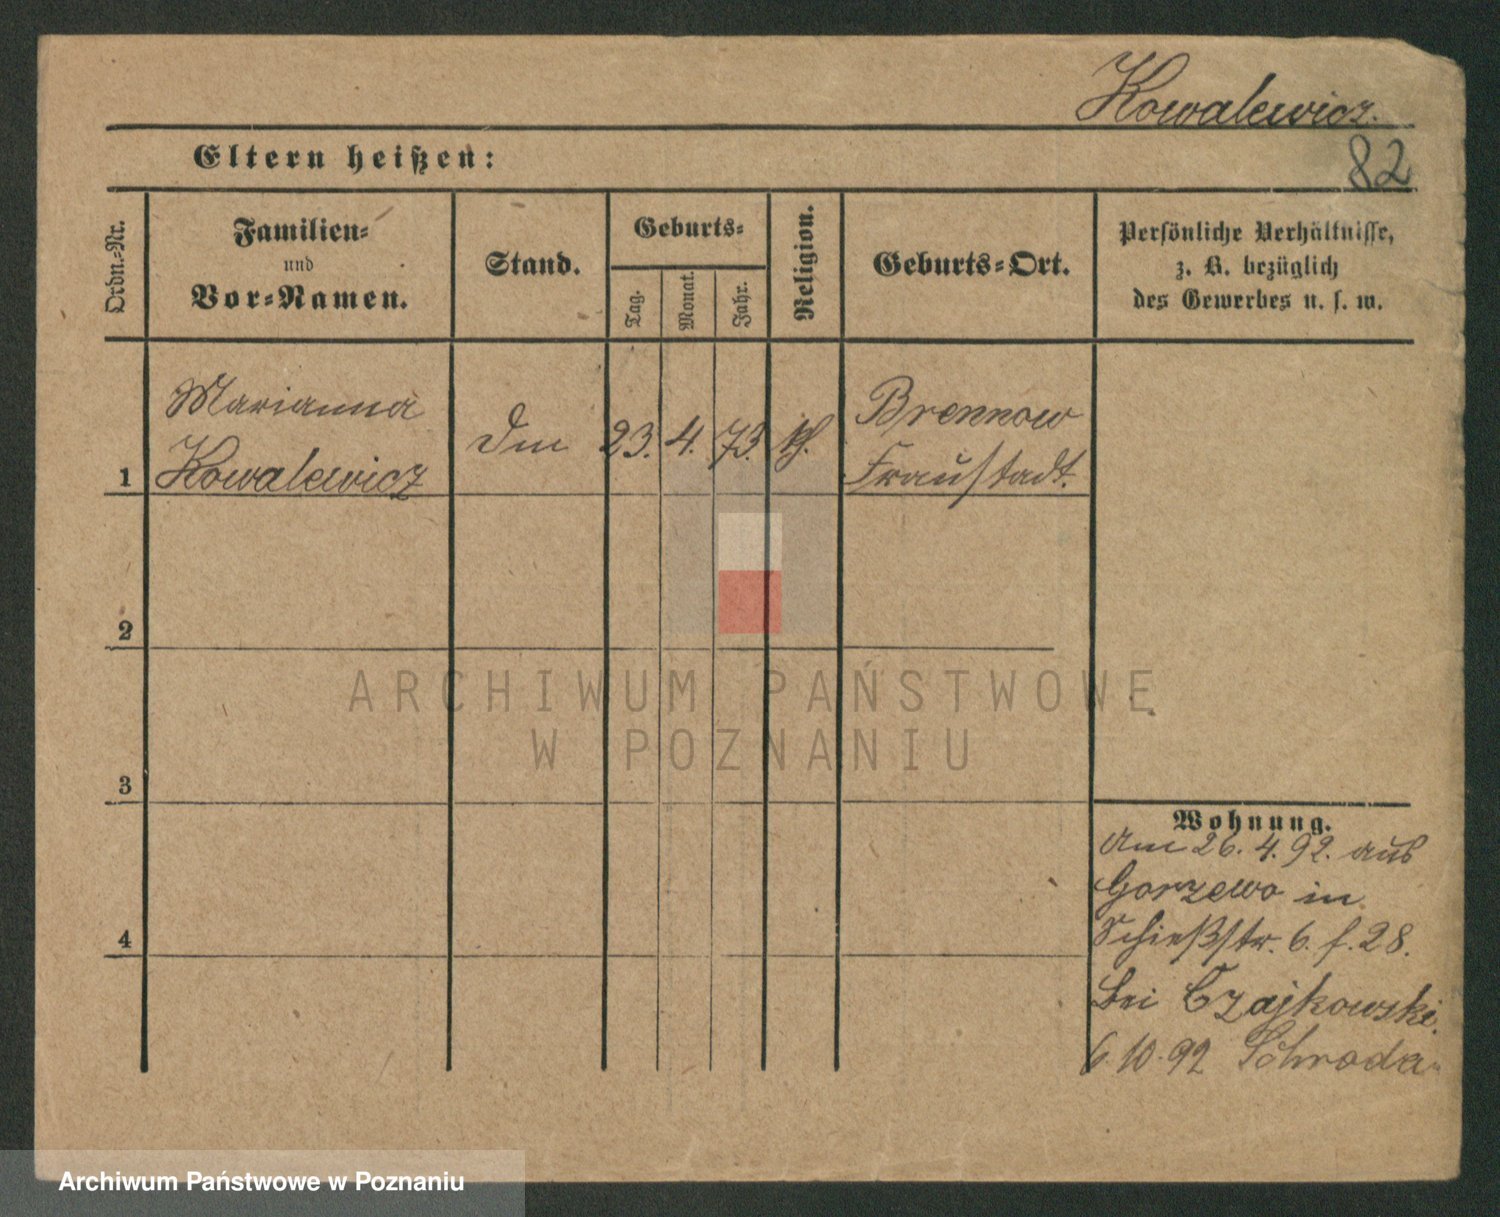 Kowalewicz.
82
Eltern heißen:
Ordn.-Nr.
Familien-
und
Vor-Namen.
Stand.
Geburts-
Tag.
Monat.
Jahr.
Religion.
Geburts-Ort.
Persönliche Verhältnisse,
z. B. bezüglich
des Gewerbes u. s. w.
1
Marianna
Kowalewicz
23. 4. 73.
Brennow
Fraustadt.
2
3
4
Wohnung.
Am 26. 4. 92. aus
Gorzewo in
Schießstr. 6. f. 28.
bei Czajkowski.
6.10.92 Schroda
ARCHIWUM PAŃSTWOWE
W POZNANIU
Archiwum Państwowe w Poznaniu